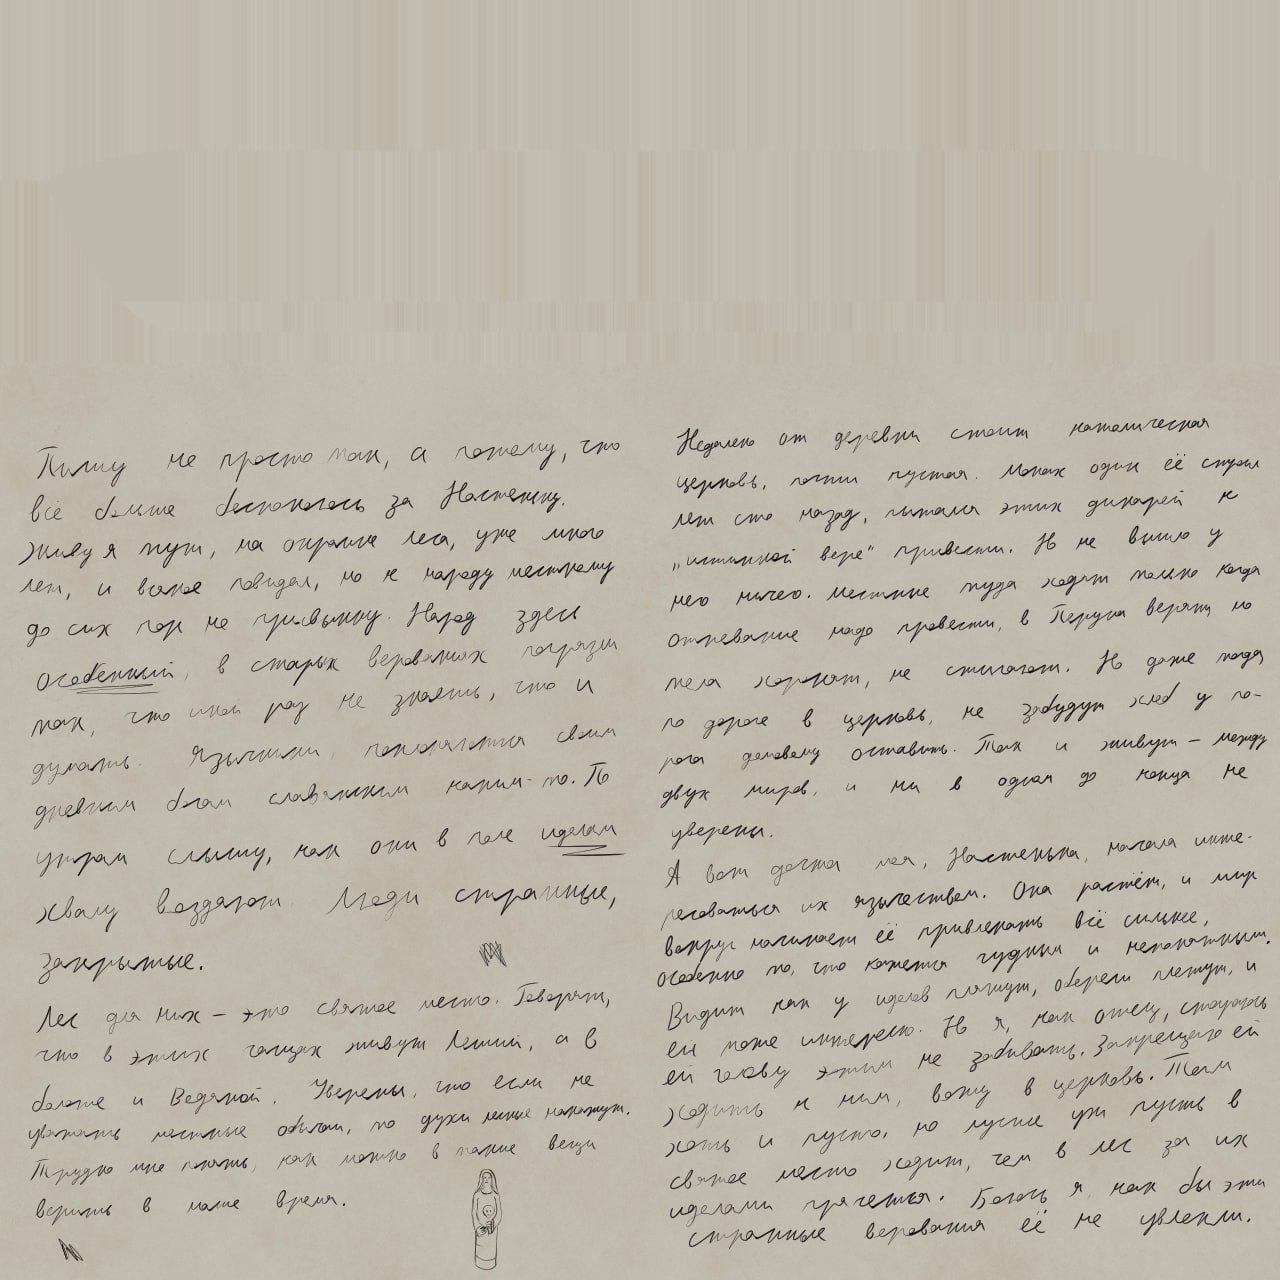 Пишу не просто так, а потому, что
всё больше беспокоюсь за Настеньку.
Живу я тут, на окраине леса, уже много
лет, и всякое повидал, но к народу местному
до сих пор не привыкну. Народ здесь
особенный, в старых верованиях погрязли
так, что иной раз не знаешь, что и
думать. Язычники, поклоняются своим
древним богам славянским каким-то. По
утрам слышу, как они в поле идолам
хвалу воздают. Люди странные,
закрытые.
Лес для них – это святое место. Говорят,
что в этих чащах живут Леший, а в
болоте и Водяной. Уверены, что если не
уважать местные обычаи, то духи лесные накажут.
Трудно мне понять, как можно в такие вещи
верить в наше время.
Недалеко от деревни стоит католическая
церковь, почти пустая. Монах один её строил
лет сто назад, пытался этих дикарей к
„истинной вере“ привести. Но не вышло у
него ничего. Местные туда ходят только когда
отпевание надо провести, в Перуна верят, но
тела хоронят, не сжигают. Но даже тогда
по дороге в церковь, не забудут хлеб у по-
рога домовому оставить. Так и живут – между
двух миров, и ни в одном до конца не
уверены.
А вот дочка моя, Настенька, начала инте-
ресоваться их язычеством. Она растёт, и мир
вокруг начинает её привлекать всё сильнее,
особенно то, что кажется чудным и непонятным.
Видит как у идолов пляшут, обереги плетут, и
ей тоже интересно. Но я, как отец, стараюсь
ей голову этим не забивать. Запрещаю ей
ходить к ним, вожу в церковь. Там
хоть и пусто, но лучше уж пусть в
святое место ходит, чем в лес за их
идолами прячется. Боюсь я, как бы эти
странные верования её не увлекли.